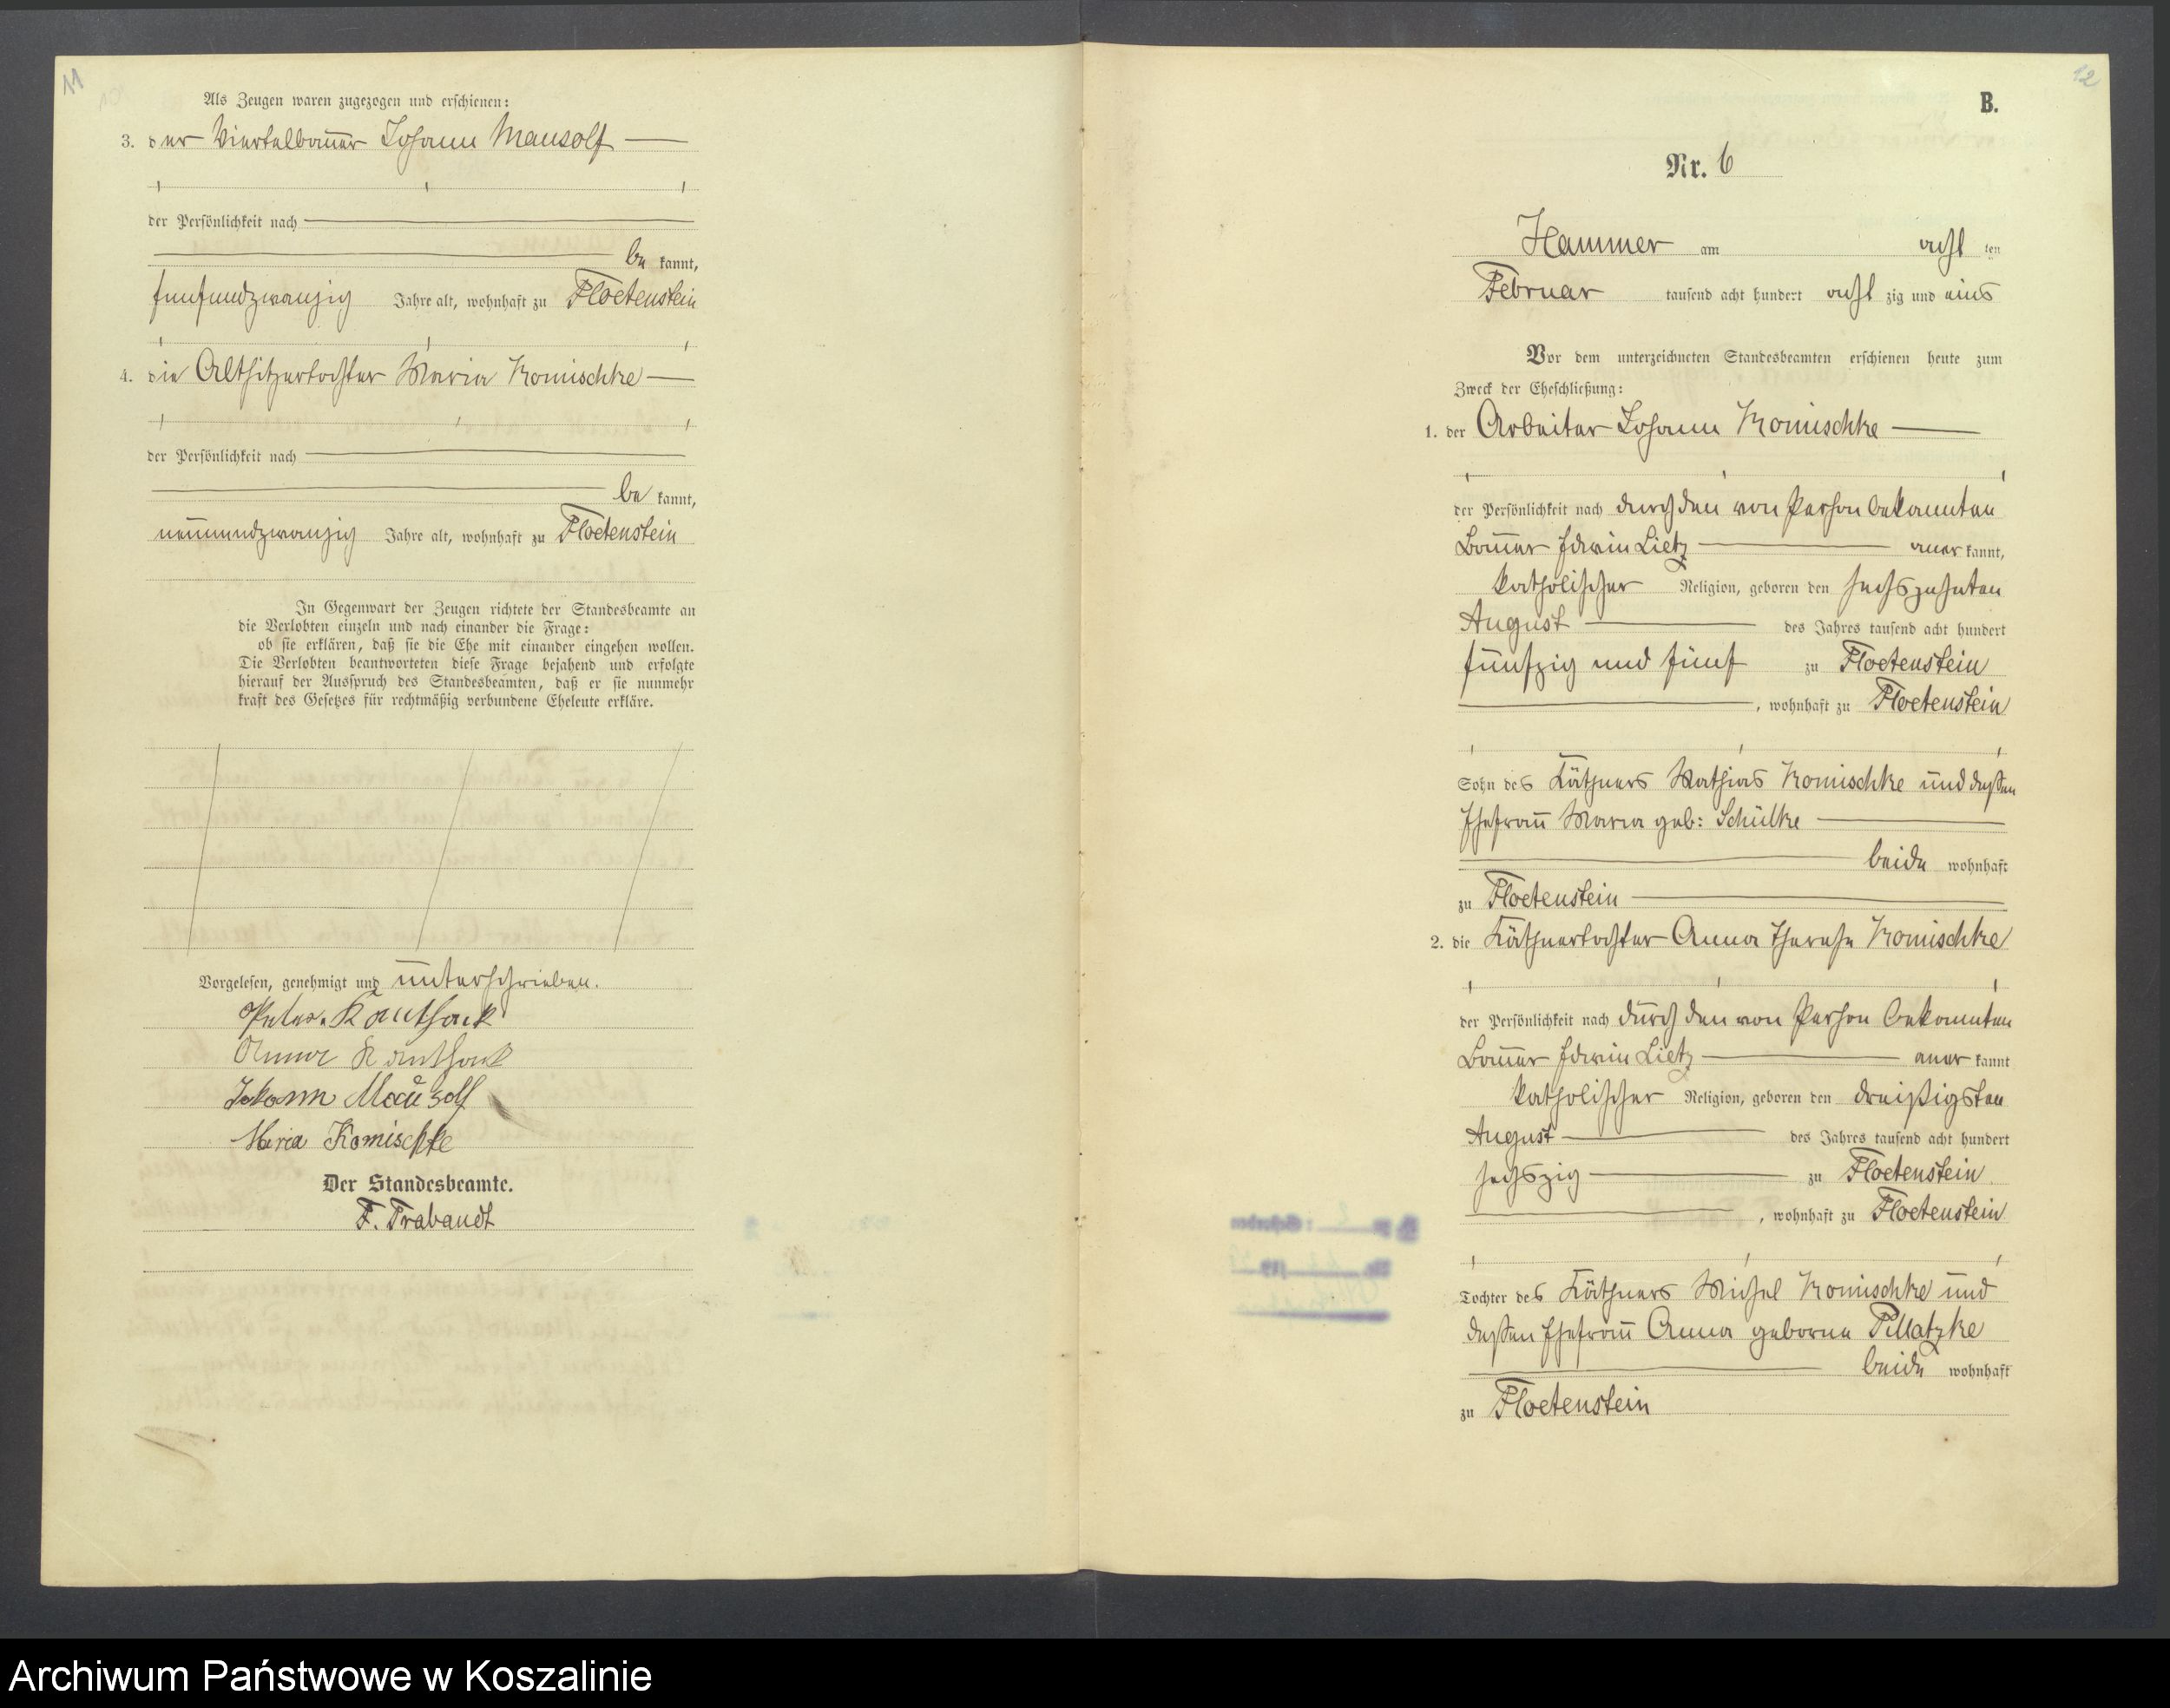 11
Als Zeugen waren zugezogen und erschienen:
3. der Viertelbauer Johann Mausolf
der Persönlichkeit nach
be kannt,
fünfundzwanzig Jahre alt, wohnhaft zu Floetenstein
4. die Altsitzertochter Maria Komischke
der Persönlichkeit nach
be kannt,
neunundzwanzig Jahre alt, wohnhaft zu Floetenstein
In Gegenwart der Zeugen richtete der Standesbeamte an
die Verlobten einzeln und nach einander die Frage:
ob sie erklären, daß sie die Ehe mit einander eingehen wollen.
Die Verlobten beantworteten diese Frage bejahend und erfolgte
hierauf der Ausspruch des Standesbeamten, daß er sie nunmehr
kraft des Gesetzes für rechtmäßig verbundene Eheleute erkläre.
Vorgelesen, genehmigt und unterschrieben.
Peter Kauthack
Anna Kauthack
Johann Mausolf
Maria Komischke
Der Standesbeamte.
F. Trabandt
12
B.
Nr. 6
Hammer am acht ten
Februar tausend acht hundert acht zig und eins
Vor dem unterzeichneten Standesbeamten erschienen heute zum
Zweck der Eheschließung:
1. der Arbeiter Johann Komischke
der Persönlichkeit nach durch den von Person bekannten
Bauer Edwin Lietz aner kannt,
katholischer Religion, geboren den sechszehnten
August des Jahres tausend acht hundert
fünfzig und fünf zu Floetenstein
, wohnhaft zu Floetenstein
Sohn des Käthners Mathias Komischke und dessen
Ehefrau Maria geb: Schülke
beide wohnhaft
zu Floetenstein
2. die Käthnertochter Anna Therese Komischke
der Persönlichkeit nach durch den von Person bekannten
Bauer Edwin Lietz aner kannt
katholischer Religion, geboren den dreißigsten
August des Jahres tausend acht hundert
sechszig zu Floetenstein
, wohnhaft zu Floetenstein
Tochter des Käthners Michel Komischke und
dessen Ehefrau Anna geborne Pillatzke
beide wohnhaft
zu Floetenstein
Archiwum Państwowe w Koszalinie